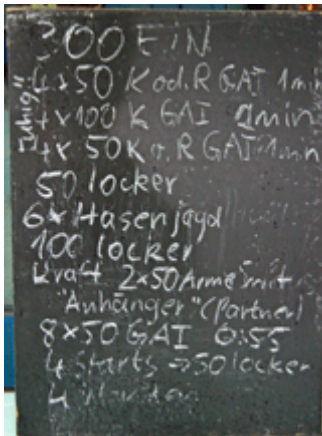 300 EIN
4x50 K od. R GAI 1 min
4x100 K GAI 1min
4x 50 K o. R GAI 1min
50 locker
6x Hasenjagd
100 locker
Kraft 2x50 Arme mit
"Anhänger" (Partner)
8x50 GAI 0:55
4 Starts → 50 locker
4